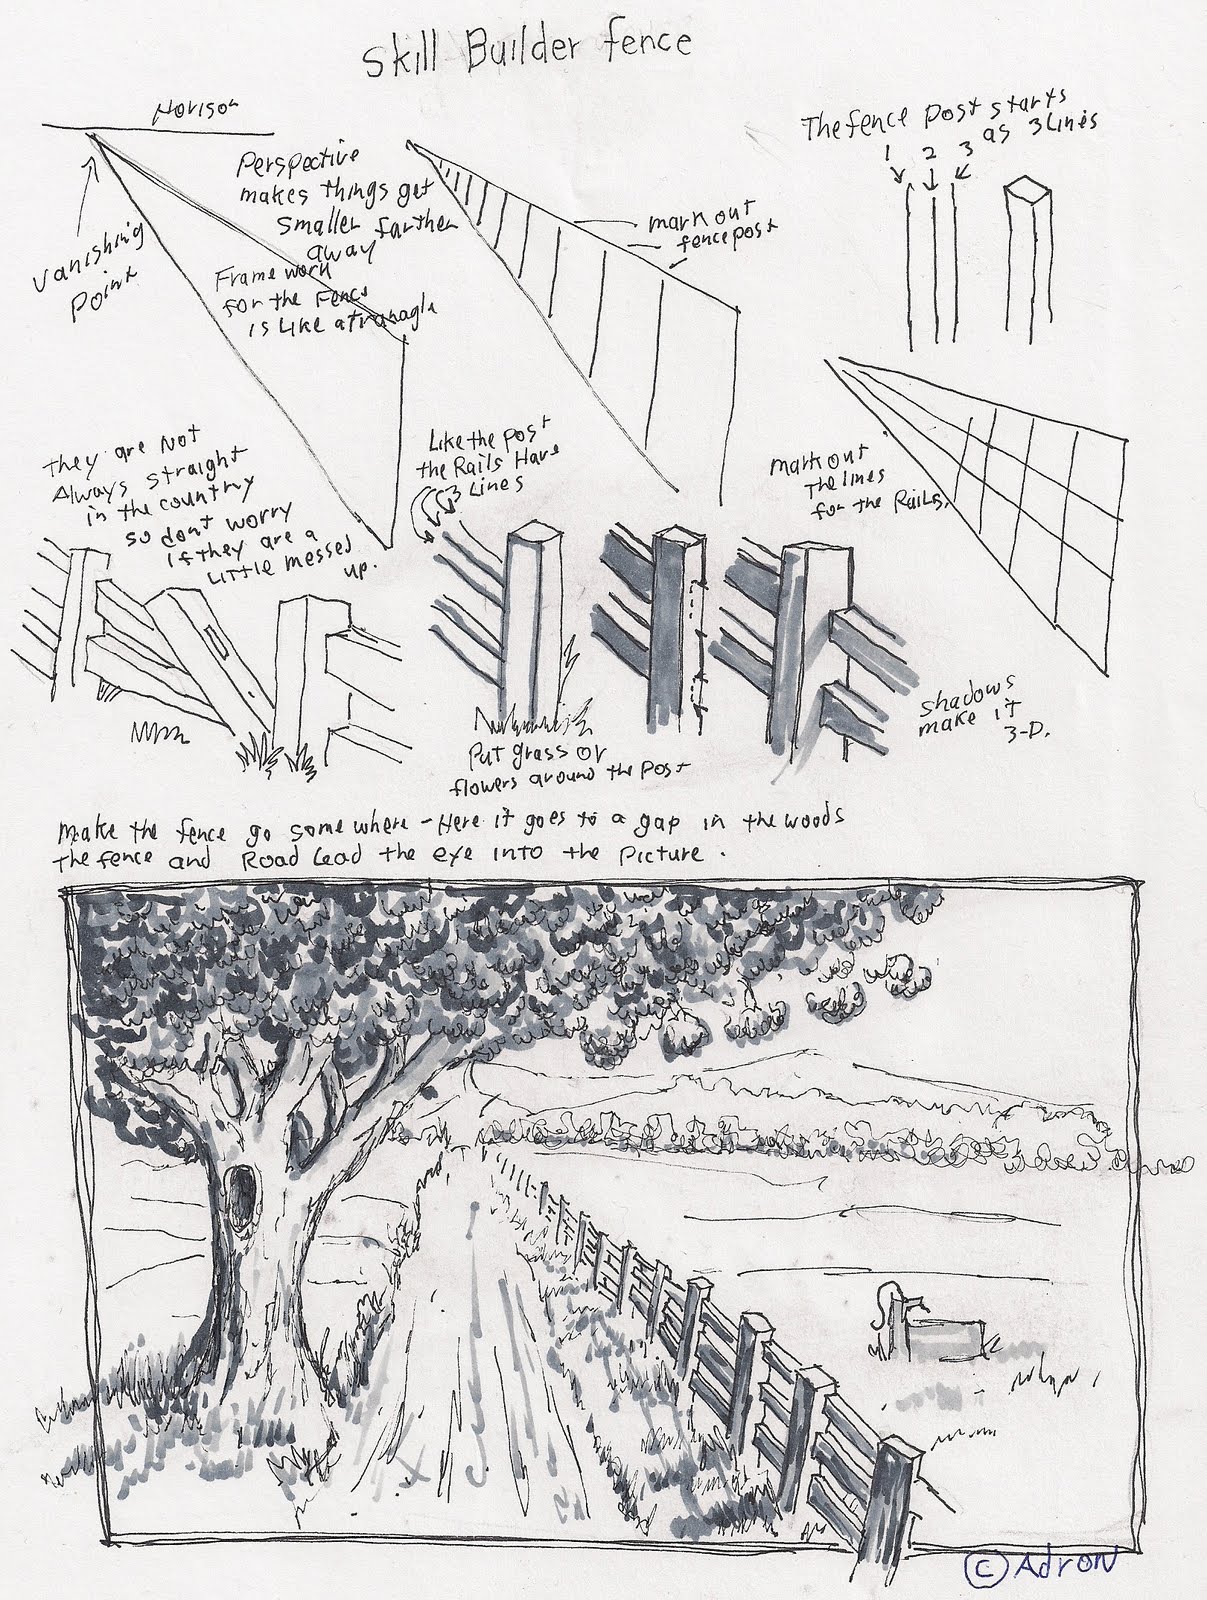 Skill Builder fence
Horison
Vanishing
Point
Perspective
makes things get
smaller farther
away
Frame work
for the Fence
is Like a tranagle
mark out
fencepost
The fence post starts
as 3 Lines
1 2 3
mark out
The lines
for the Rails.
they are Not
Always straight
in the country
so dont worry
If they are a
Little messed
up.
Like the post
the Rails Have
3 Lines
Put grass or
flowers around the Post
shadows
make it
3-D.
Make the fence go some where - Here it goes to a gap in the woods
The fence and Road Lead the eye into the Picture.
© Adron